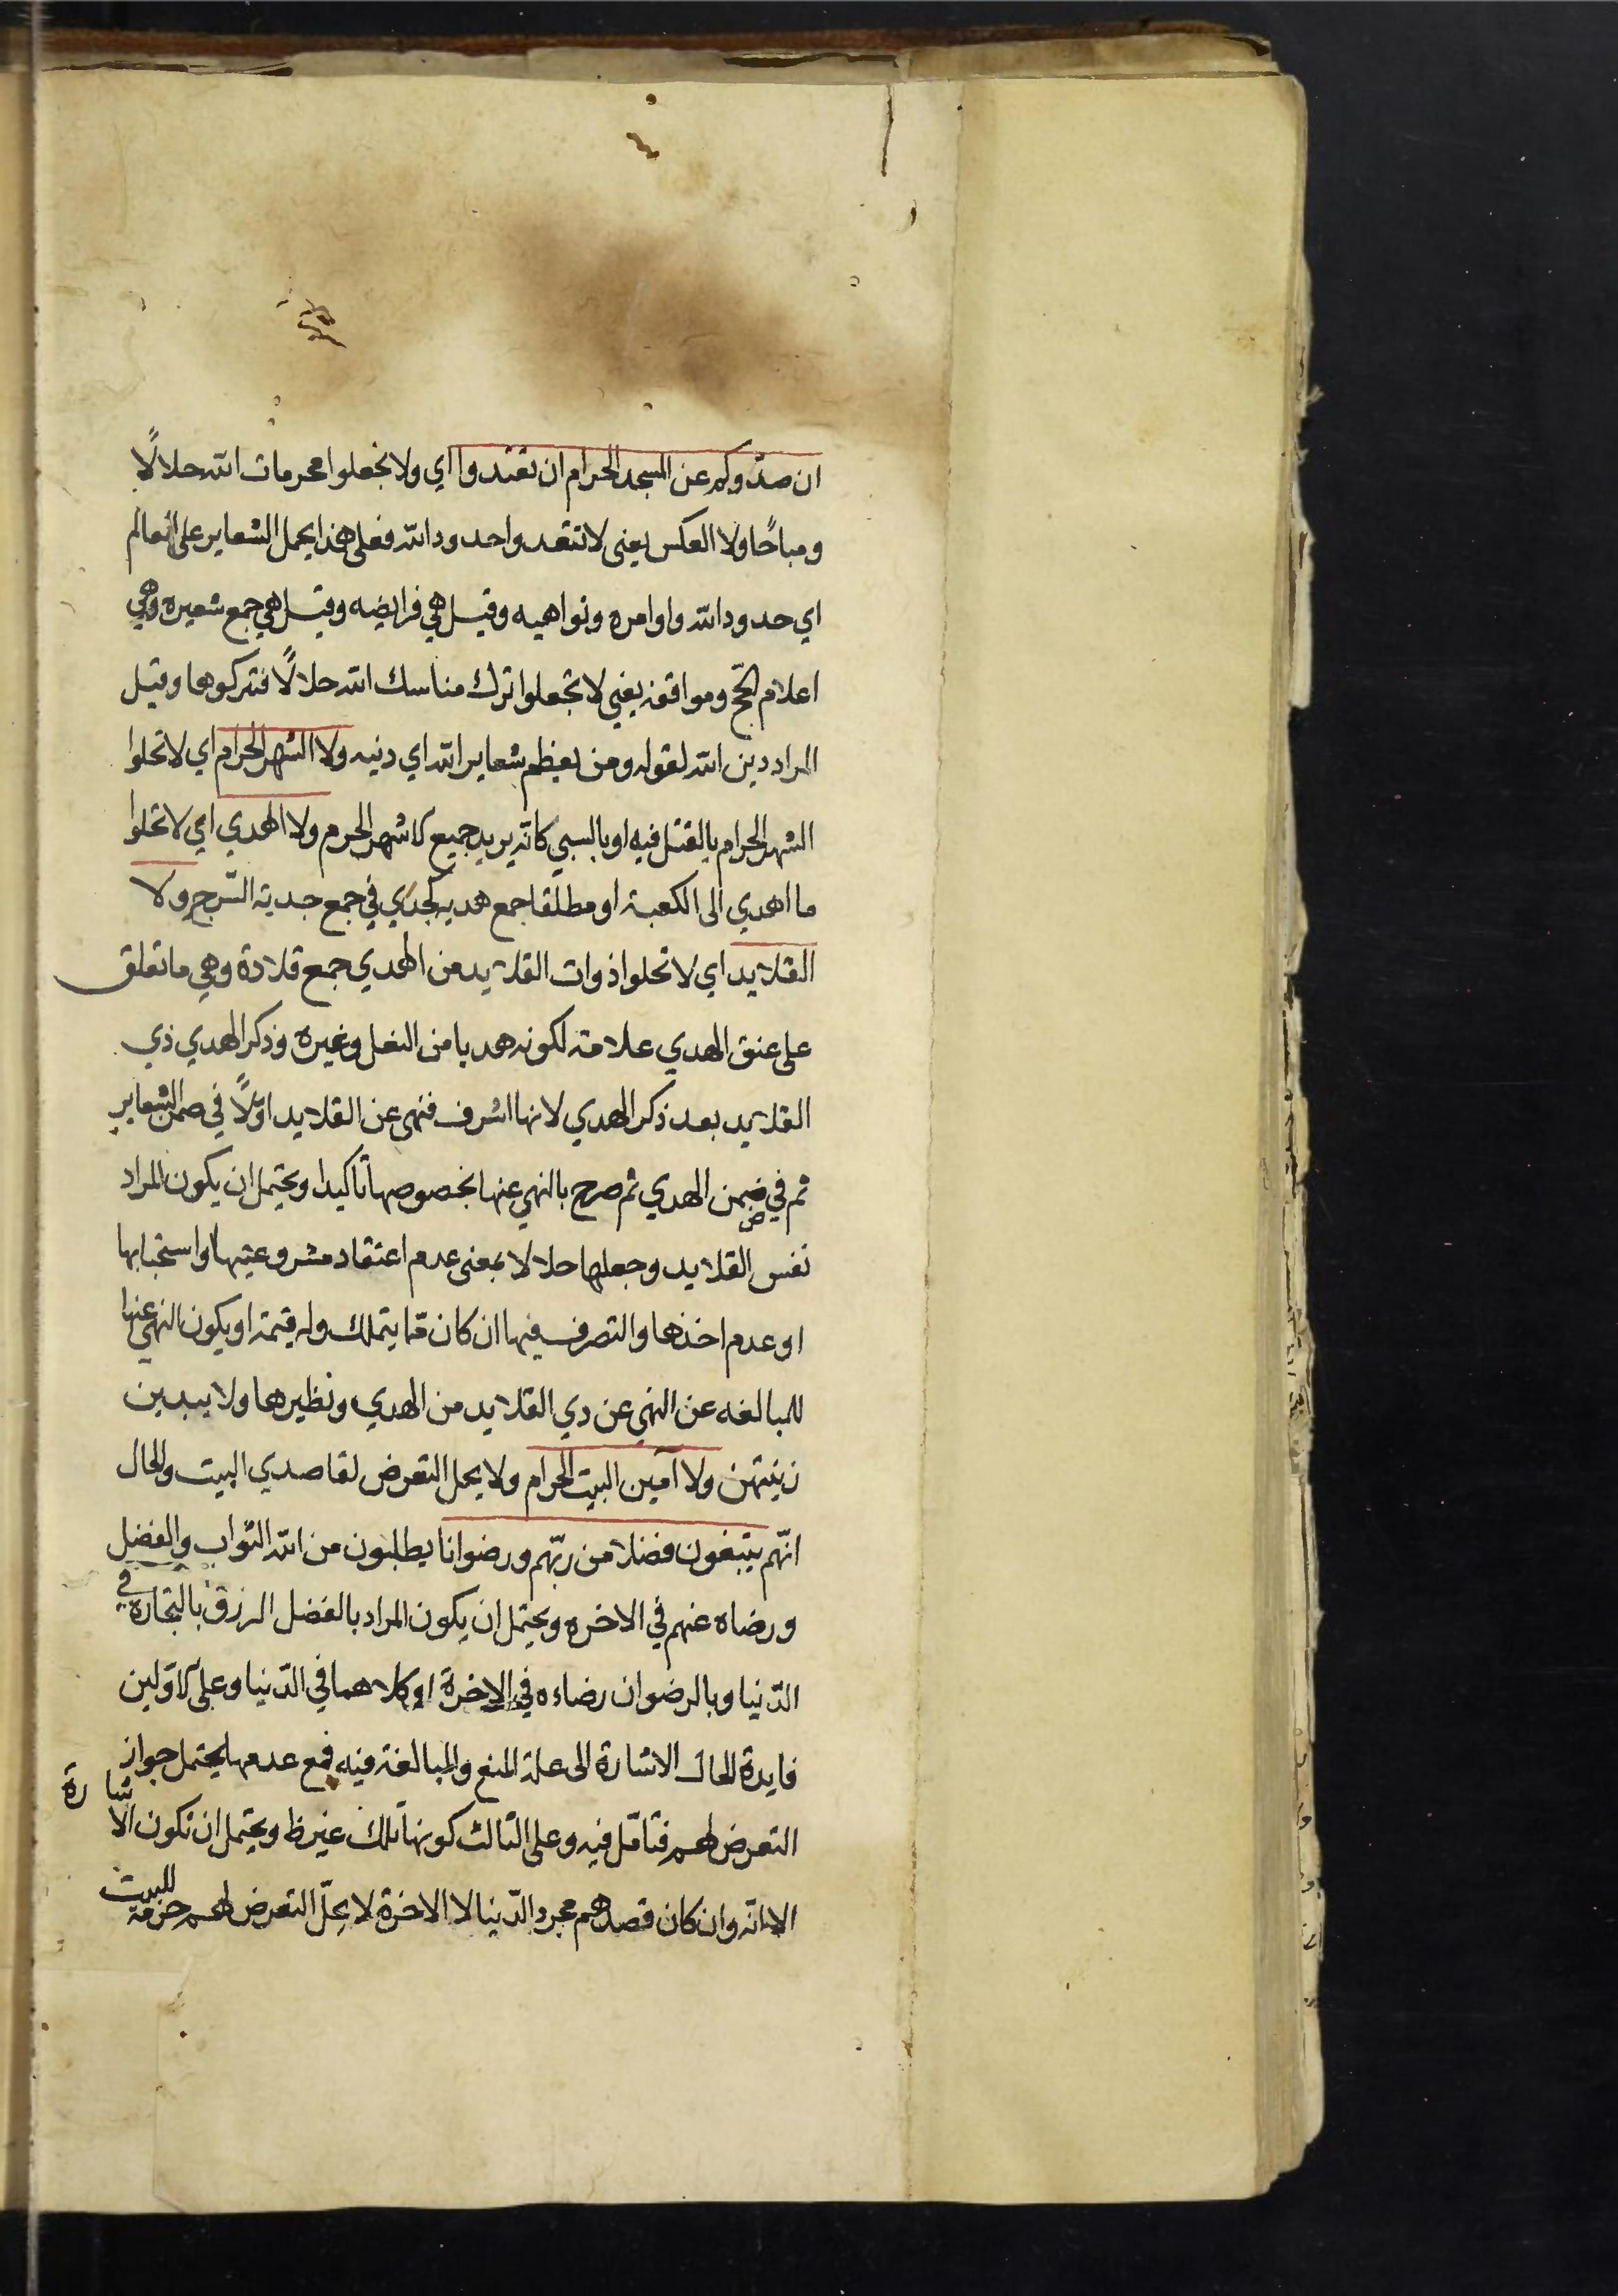 ان صدّوكم عن المسجد الحرام ان تعتدوا اي ولا تجعلوا محرمات الله حلالًا
ومباحًا ولا العكس يعني لا تتعدوا حدود الله فعلى هذا يحمل الشعاير على المعالم
اي حدود الله واوامره ونواهيه وقيل هي فرايضه وقيل هي جمع شعيره وهي
اعلام الحجّ ومواقفه يعني لا تجعلوا ترك مناسك الله حلالًا فتتركوها وقيل
المراد دين الله لقوله ومن يعظم شعاير الله اي دينه ولا الشهر الحرام اي لا تحلوا
الشهر الحرام بالقتل فيه او بالسبي كانّه يريد جميع الاشهر الحرم ولا الهدي اي لا تحلوا
ما اهدي الى الكعبة او مطلقا جمع هديه كجدي في جمع جدية السّرج ولا
القلايد اي لا تحلوا ذوات القلايد من الهدي جمع قلادة وهي ما تعلق
على عنق الهدي علامة لكونه هديا من النعل وغيره وذكر الهدي ذي
القلايد بعد ذكر الهدي لانها اشرف فنهى عن القلايد اوّلًا في ضمن الشعاير
ثم في ضمن الهدي ثم صرح بالنهي عنها بخصوصها تاكيدا ويحتمل ان يكون المراد
نفس القلايد وجعلها حلالا بمعنى عدم اعتقاد مشروعيتها او استحبابها
او عدم اخذها والتصرف فيها ان كان ممّا يتملك وله قيمة او يكون النهي عنها
للمبالغه عن النهي عن ذي القلايد من الهدي ونظيرها ولا يبدين
زينتهن ولا آمين البيت الحرام ولا يحل التعرض لقاصدي البيت والحال
انّهم يبتغون فضلا من ربّهم ورضوانا يطلبون من الله الثواب والفضل
ورضاه عنهم في الاخره ويحتمل ان يكون المراد بالفضل الرزق بالتجاره في
الدّنيا وبالرضوان رضاءه في الاخرة او كلاهما في الدّنيا وعلى الاوّلين
فايدة الحال الاشارة الى علة المنع والمبالغة فيه فمع عدمها يحتمل جواز
التعرض لهم فتامّل فيه وعلى الثالث كونها تلك غير ظ ويحتمل ان تكون الاشارة
الا انّه وان كان قصدهم مجرد الدّنيا لا الاخرة لا يحلّ التعرض لهم حرمة للبيت